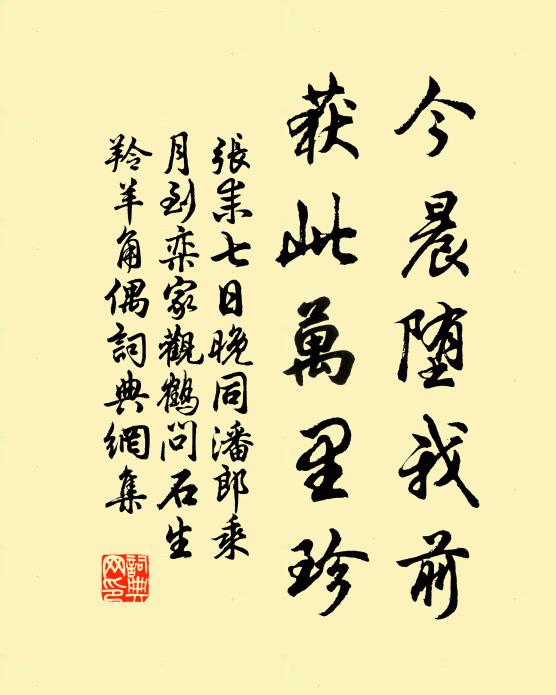 今晨堕我前
获此萬里珍
張耒七日晚同潘郎乘
月到栾家觀鶴问石生
羚羊角偶詞典網集
詞典
网印